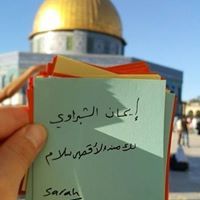 إيمان الشبراوي
لك من الأقصى سلام
Sarah